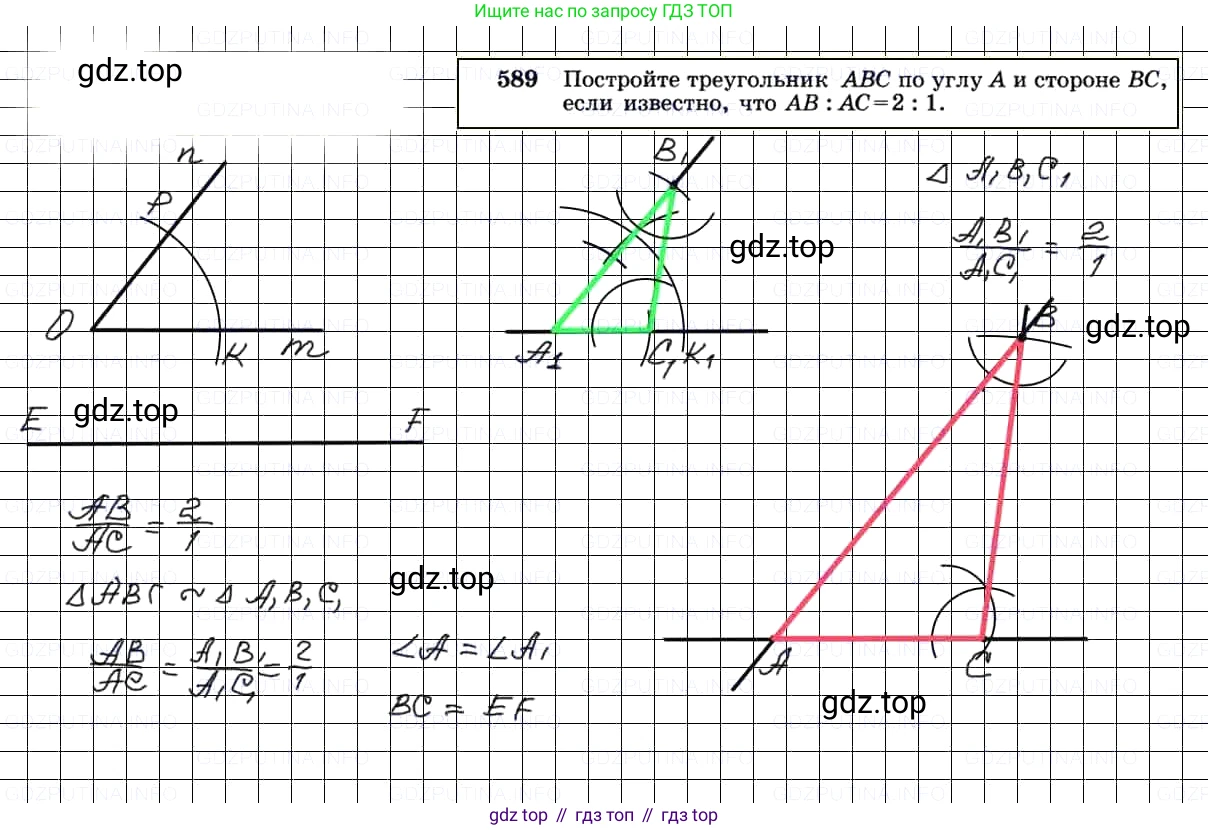 Ищите нас по запросу ГДЗ ТОП
gdz.top
589 Постройте треугольник ABC по углу A и стороне BC,
если известно, что AB : AC = 2 : 1.
n
P
O
K
m
B₁
A₁
C₁
K₁
gdz.top
△ A₁B₁C₁
A₁B₁/A₁C₁ = 2/1
B
gdz.top
A
C
gdz.top
E
gdz.top
F
AB/AC = 2/1
△ABC ~ △ A₁B₁C₁
gdz.top
AB/AC = A₁B₁/A₁C₁ = 2/1
∠A = ∠A₁
BC = EF
gdz top // гдз топ // gdz top
GDZPUTINA.INFO